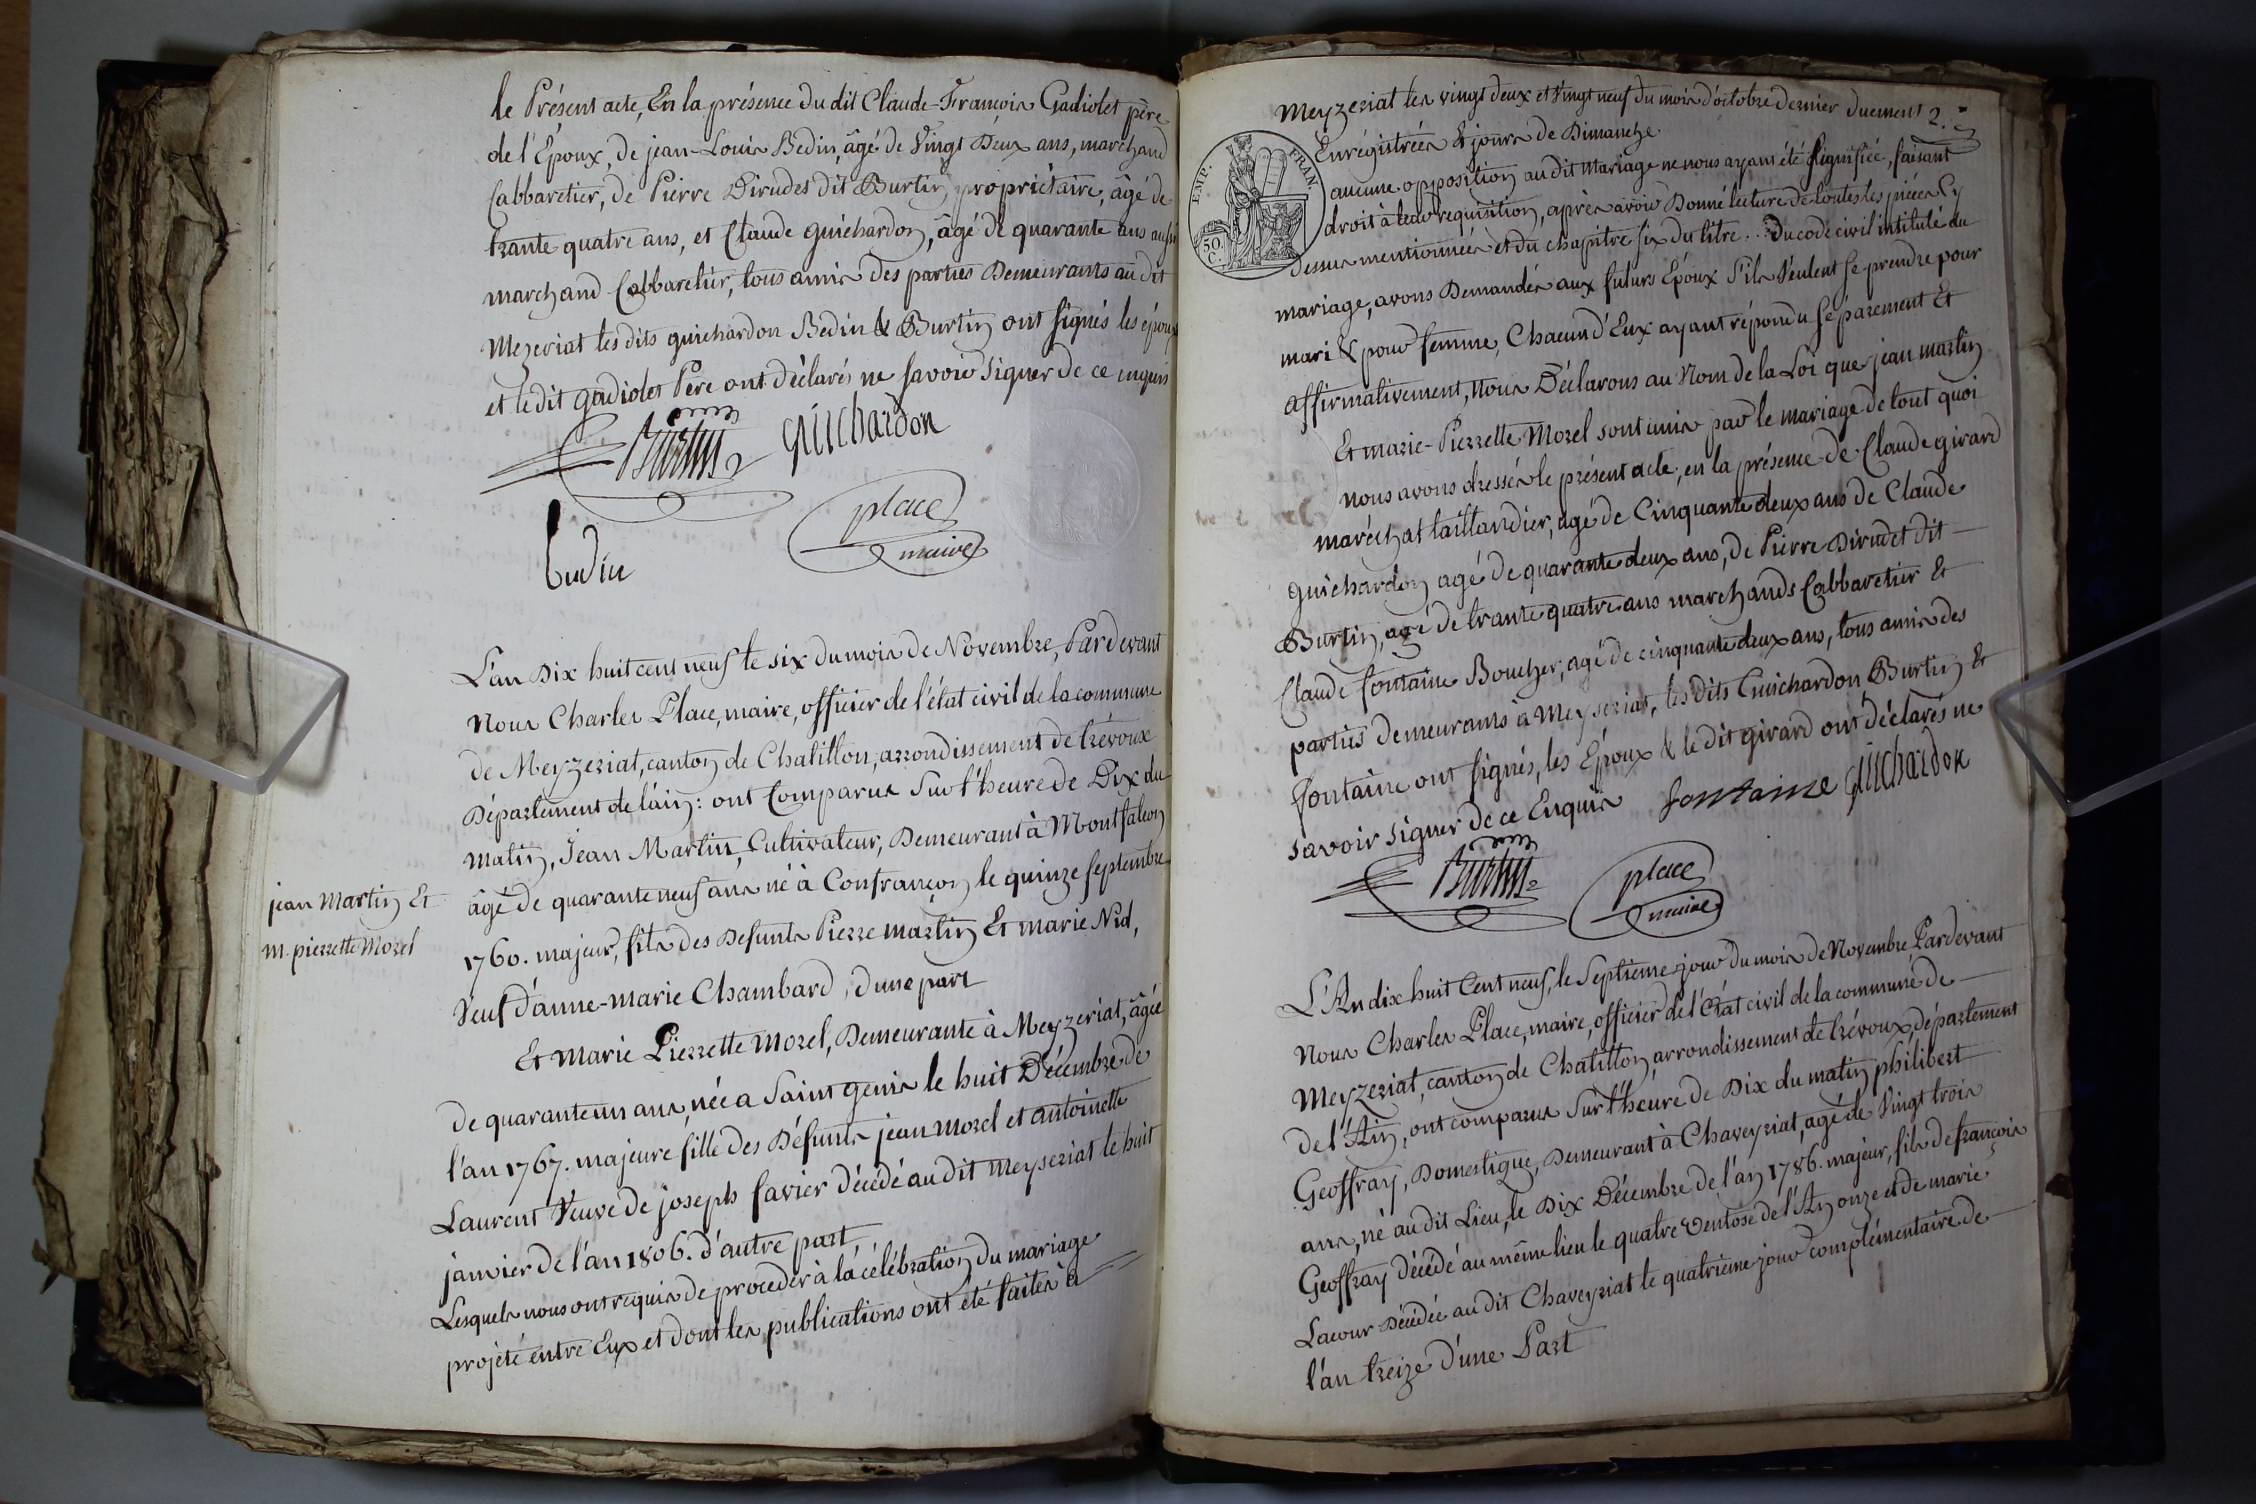 le Présent acte, En la présence du dit Claude-François Gadiolet père
de l'Époux, de jean-Louis Bedin, âgé de Vingt Deux ans, marchand
Cabbaretier, de Pierre Dirudes dit Burtin propriétaire, âgé de
trante quatre ans, et Claude guichardon, âgé de quarante ans aussi
marchand Cabbaretier, tous amis des parties Demeurants au dit
Mezeriat les dits guichardon Bedin & Burtin ont signés les époux
et le dit gadiolet Père ont déclarés ne savoir signer de ce enquis
Burtin guichardon
place
maire
bedin
L'an Dix huit cent neuf le six du mois de Novembre, Pardevant
Nous Charles Place, maire, officier de l'état civil de la commune
de Meyzeriat, canton de Chatillon, arrondissement de trévoux
Département de l'ain: ont Comparus Sur l'heure de Dix du
matin, Jean Martin, Cultivateur, Demeurant à Montfalcon
jean Martin Et
m. pierrette Morel
âgé de quarante neuf ans né à Confrançon le quinze septembre
1760. majeur, fils des Defunts Pierre martin Et marie Nid,
Veuf d'anne-marie Chambard, d'une part
Et Marie Pierrette Morel, Demeurante à Meyzeriat, âgée
de quarante un ans, née a Saint genis le huit Décembre de
l'an 1767. majeure fille des Défunts jean Morel et antoinette
Laurent Veuve de joseph favier décédé au dit meyseriat le huit
janvier de l'an 1806. d'autre part
Lesquels nous ont requis de proceder à la célébration du mariage
projété entre Eux et dont les publications ont été faites à
Meyzeriat les vingt deux et Vingt neuf du mois d'octobre dernier duement
2.
Enrégistrées & jours de Dimanche.
aucune opposition au dit Mariage ne nous ayant été signifiée, faisant
droit à leur requisition, après avoir Donné lecture de toutes les pièces Cy
dessus mentionnées et du chapitre six du titre ... du code civil intitulé du
EMP. FRAN.
50.
C.
mariage, avons Demandés aux futurs Epoux s'ils Veulent se prendre pour
mari & pour femme, Chacun d'Eux ayant répondu séparement Et
affirmativement, Nous Déclarons au Nom de la Loi que jean martin
Et marie-Pierrette Morel sont unis par le mariage de tout quoi
nous avons dressés le présent acte, en la présence de Claude girard
maréchat taillandier, âgé de Cinquante deux ans de Claude
guichardon agé de quarante deux ans, de Pierre Dirudet dit
Burtin, agé de trante quatre ans marchands Cabbaretier Et
Claude fontaine Boucher, agé de cinquante deux ans, tous amis des
parties demeurants à Meyseriat, les dits Guichardon Burtin Et
fontaine ont signés, les Époux & le dit girard ont déclarés ne
savoir signer de ce Enquis fontaine guichardon
Burtin place
maire
L'An dix huit Cent neuf, le Septieme jour du mois de Novembre Pardevant
Nous Charles Place, maire, officier de l'état civil de la commune de
Meyzeriat, canton de Chatillon, arrondissement de trévoux, département
de l'Ain, ont comparus sur l'heure de Dix du matin philibert
Geoffray, Domestique, Demeurant à Chaveyriat, agé de Vingt trois
ans, né au dit Lieu, le Dix Décembre de l'an 1786. majeur, fils de françois
Geoffray décédé au même lieu le quatre Ventose de l'An onze et de marie
Lacour Décédée au dit Chaveyriat le quatrieme jour complémentaire de
l'an treize d'une Part